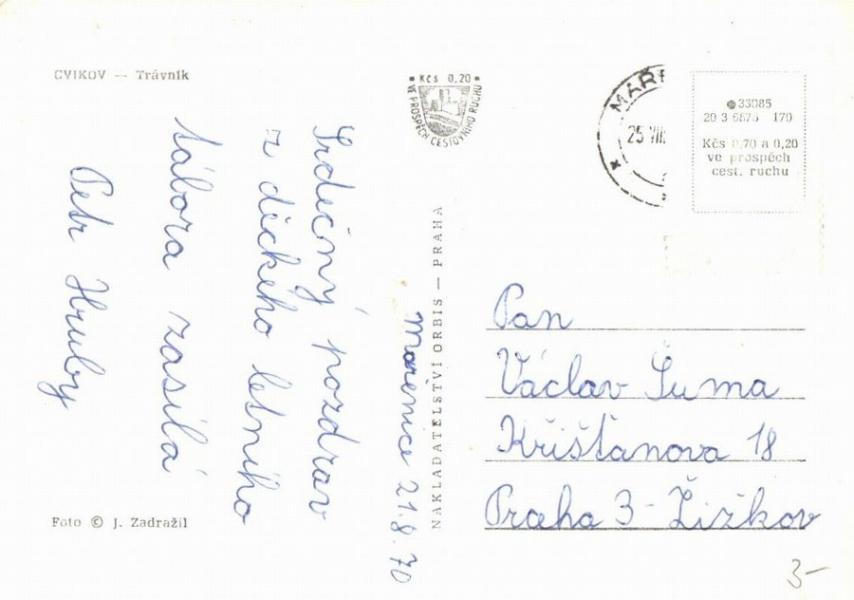 CVIKOV — Trávník
Mařenice 21.8.70
Srdečný pozdrav
z dického letního
tábora zasílá
Petr Hruby
Foto © J. Zadražil
Kčs 0,20
VE PROSPĚCH CESTOVNÍHO RUCHU
NAKLADATELSTVÍ ORBIS — PRAHA
MAŘE
25 VIII
33085
20 3 6875 170
Kčs 0,70 a 0,20
ve prospěch
cest. ruchu
Pan
Václav Šuma
Křišťanova 18
Praha 3 - Žižkov
3-